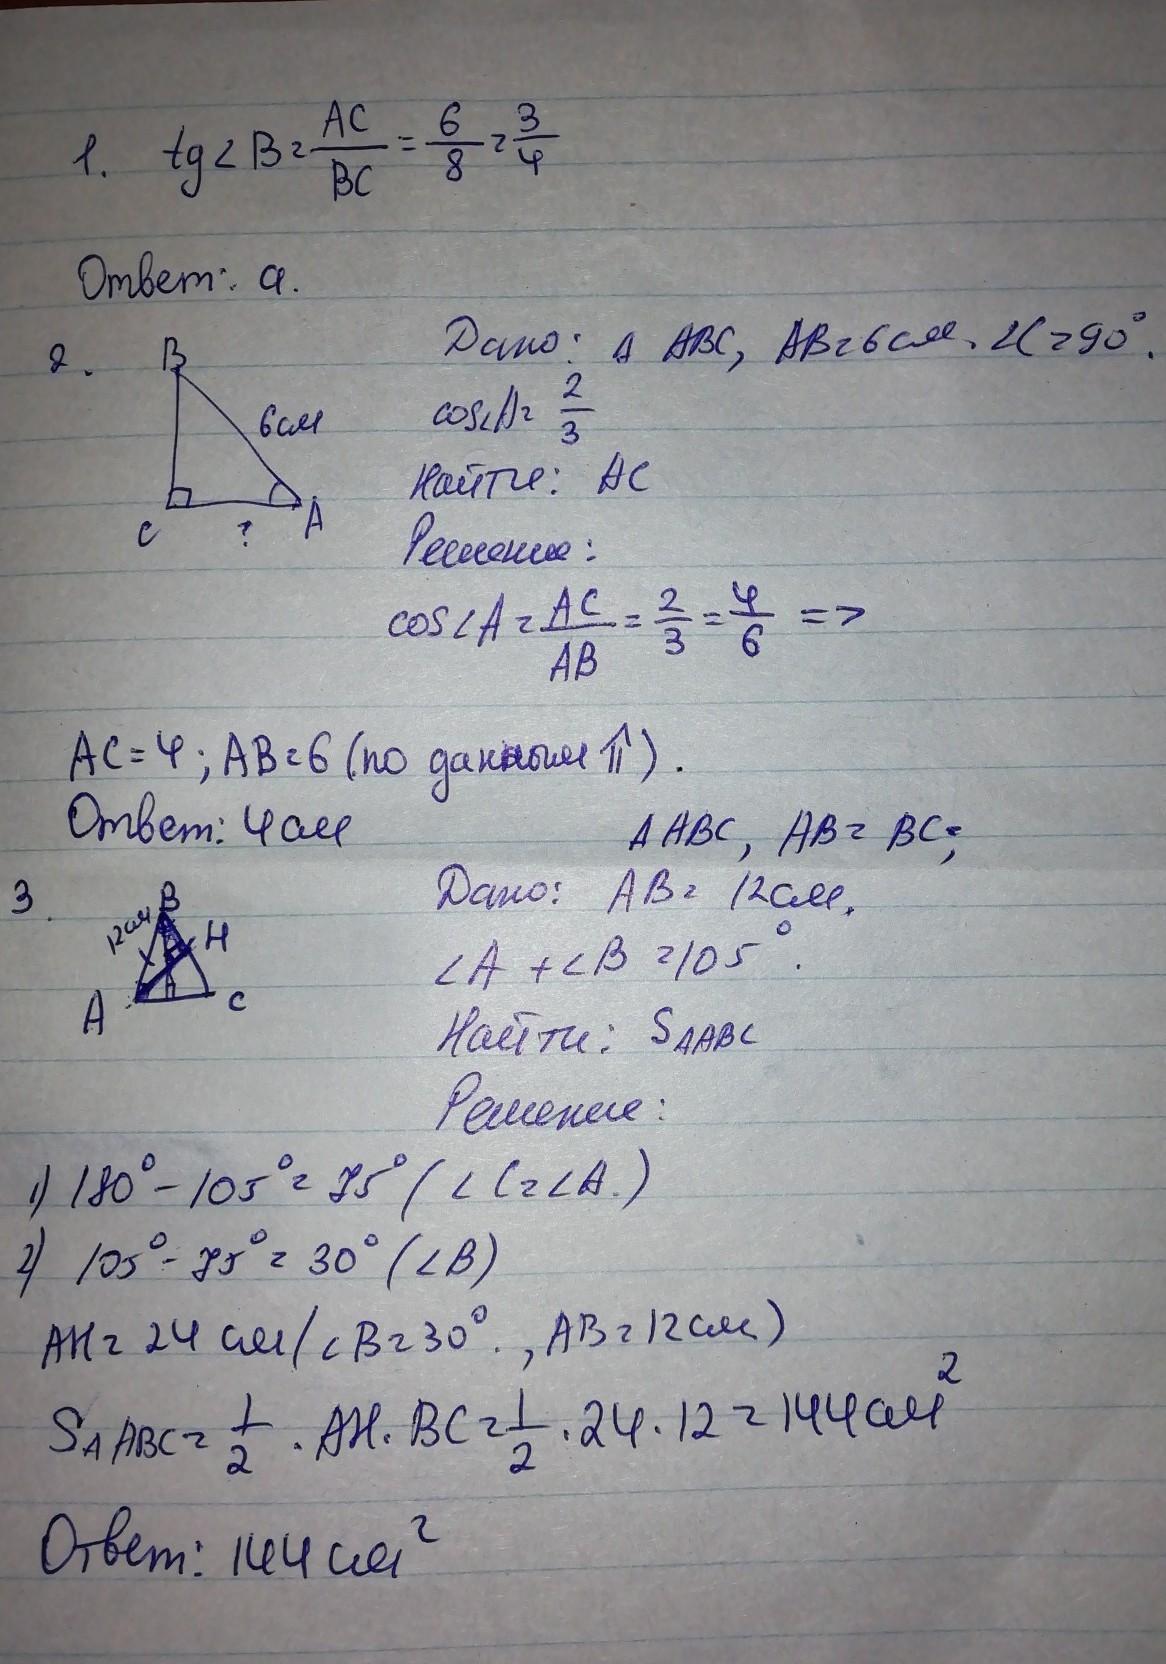 1. tg∠B = AC/BC = 6/8 = 3/4
Ответ: а.
2.
B
6см
C
?
A
Дано: Δ ABC, AB=6см. ∠C=90°.
cos∠A= 2/3
Найти: AC
Решение:
cos∠A = AC/AB = 2/3 = 4/6 =>
AC=4; AB=6 (по данным ⇑).
Ответ: 4см
3.
B
12см
H
A
C
Δ ABC, AB= BC;
Дано: AB= 12см.
∠A +∠B =105°.
Найти: SΔABC
Решение:
1) 180°-105°= 75° (∠C=∠A.)
2) 105°-75°= 30° (∠B)
AH= 24 см (∠B=30°., AB=12см)
SΔABC= 1/2 · AH · BC= 1/2 · 24 · 12 = 144см²
Ответ: 144см²